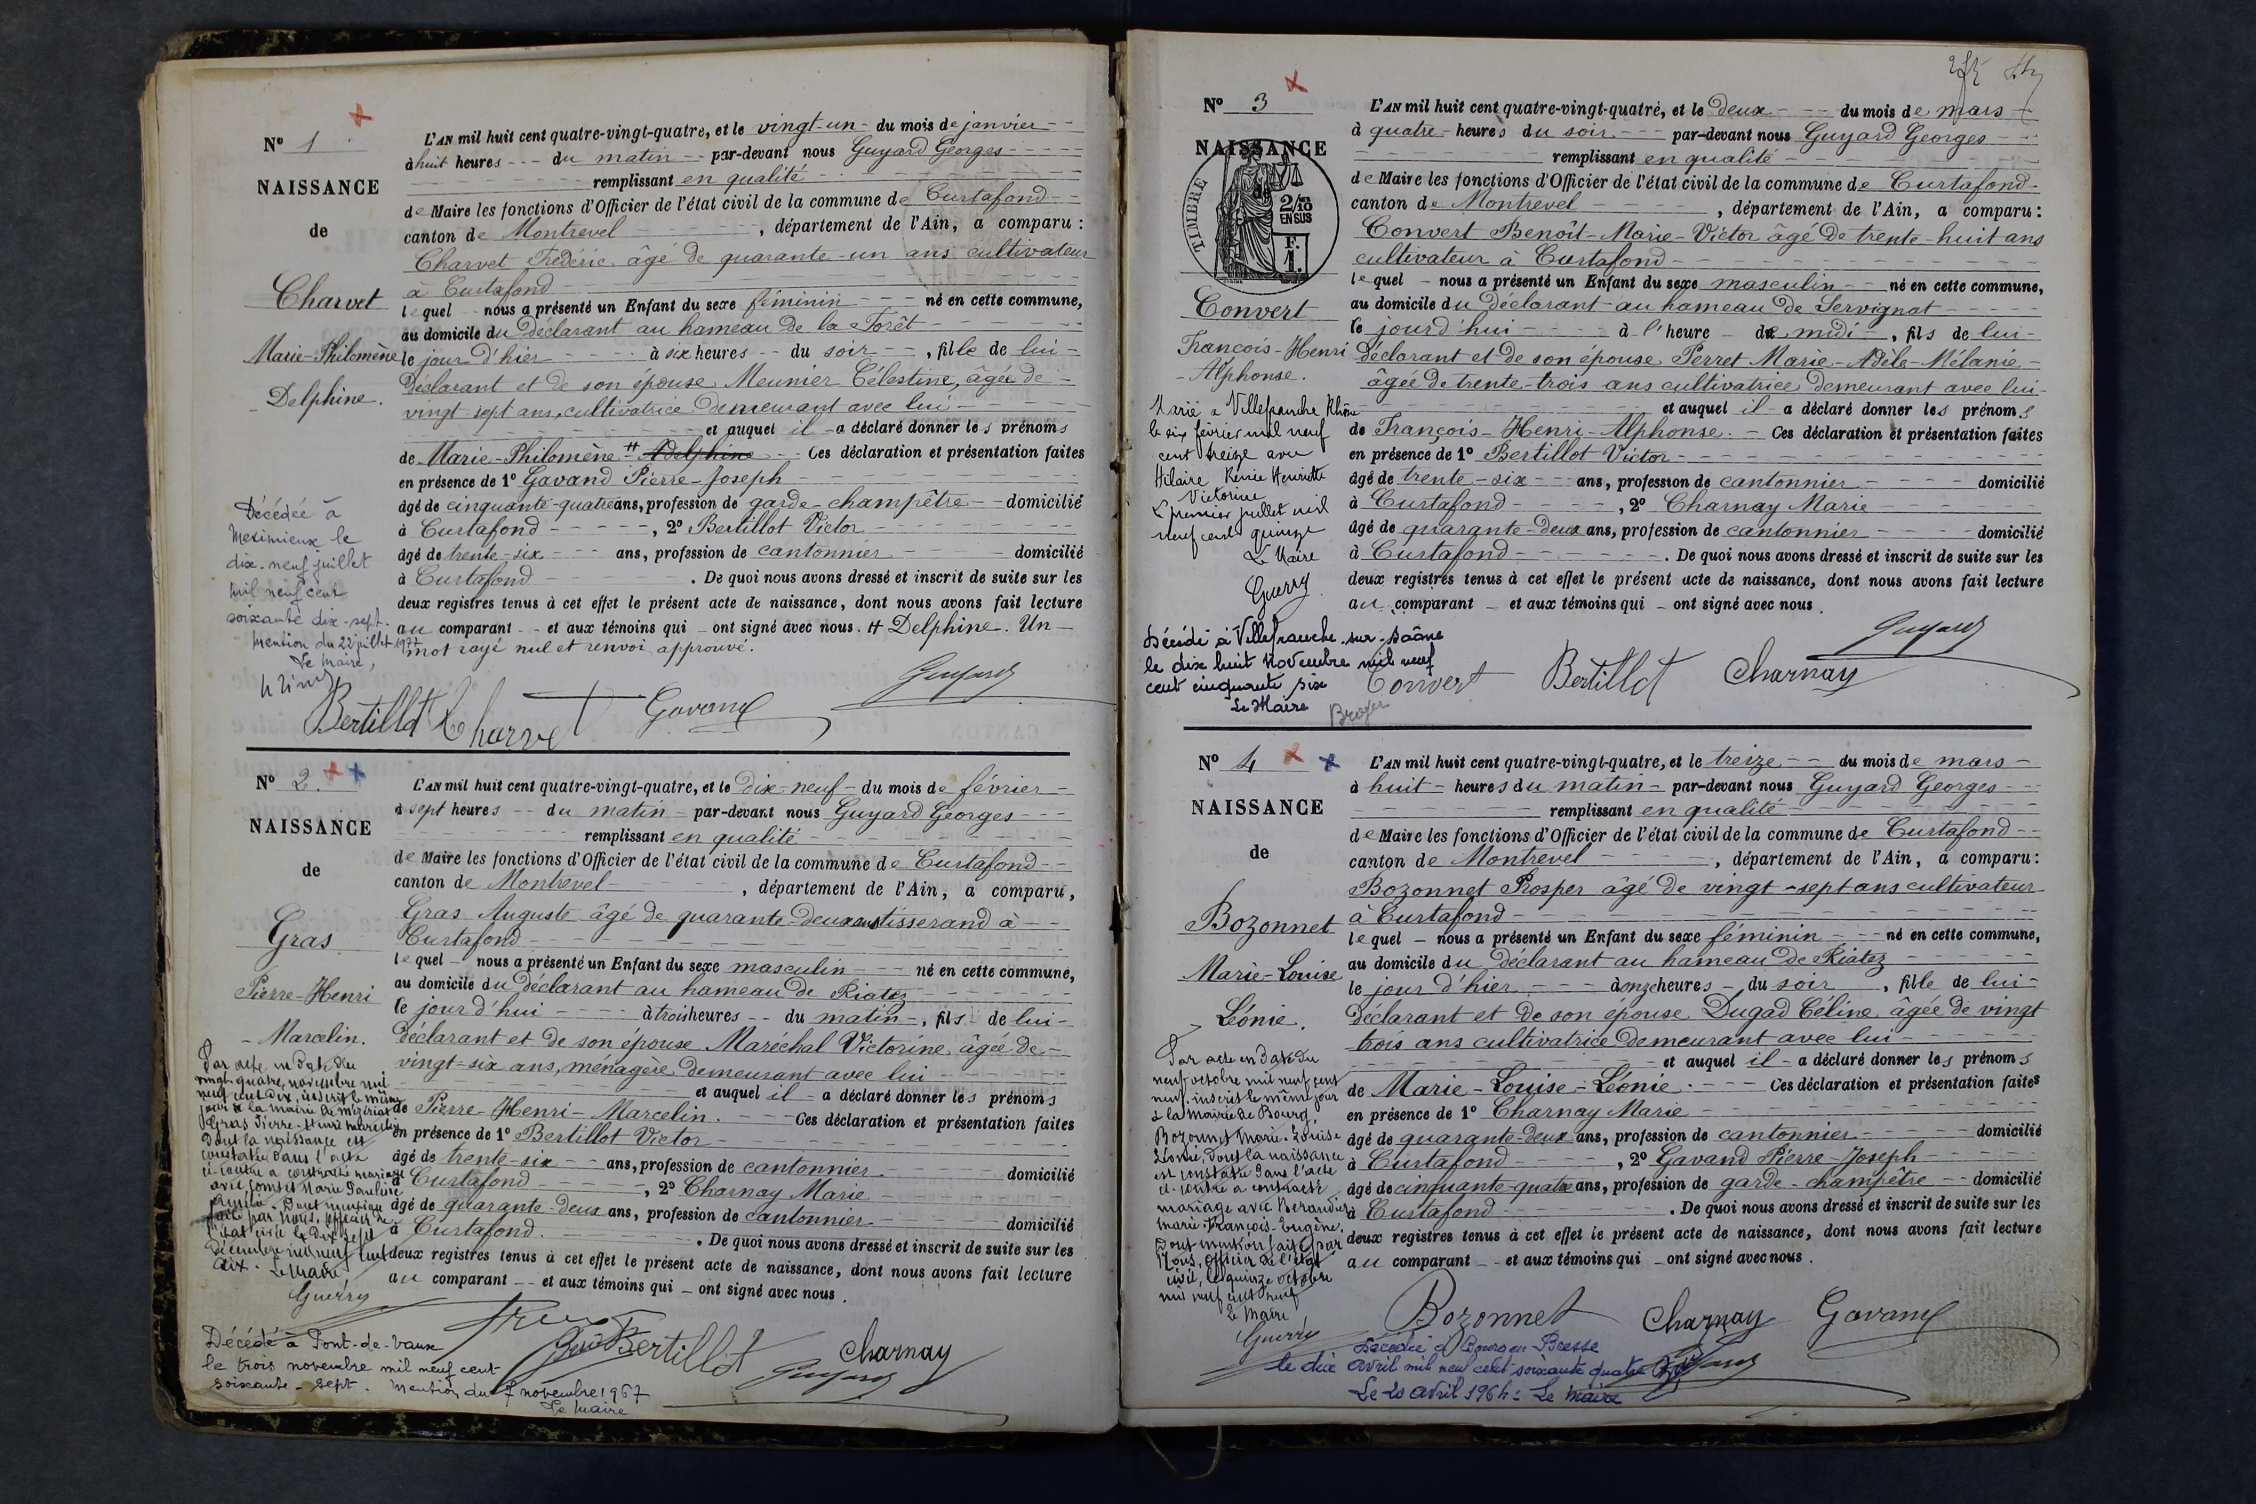 Nº 1
NAISSANCE
de
Charvet
Marie-Philomène
Delphine.
L'AN mil huit cent quatre-vingt-quatre, et le vingt-un du mois de janvier
à huit heures du matin par-devant nous Guyard Georges
remplissant en qualité
de Maire les fonctions d'Officier de l'état civil de la commune de Curtafond
canton de Montrevel, département de l'Ain, a comparu :
Charvet Frédéric âgé de quarante-un ans cultivateur
à Curtafond
lequel nous a présenté un Enfant du sexe féminin né en cette commune,
au domicile du déclarant au hameau de la Forêt
le jour d'hier à six heures du soir, fille de lui
Déclarant et de son épouse Meunier Célestine, âgée de
vingt-sept ans, cultivatrice demeurant avec lui
et auquel il a déclaré donner les prénoms
de Marie-Philomène # Adelphine Ces déclaration et présentation faites
en présence de 1º Gavand Pierre-Joseph
âgé de cinquante-quatre ans, profession de garde-champêtre domicilié
à Curtafond, 2º Bertillot Victor
âgé de trente-six ans, profession de cantonnier domicilié
à Curtafond. De quoi nous avons dressé et inscrit de suite sur les
deux registres tenus à cet effet le présent acte de naissance, dont nous avons fait lecture
au comparant et aux témoins qui ont signé avec nous. # Delphine. Un
mot rayé nul et renvoi approuvé.
Décédée à
Meximieux le
dix-neuf juillet
mil neuf cent
soixante dix-sept.
Mention du 22 juillet 1977
Le Maire,
Bertillot Charvet Gavand Guyard
Nº 2.
NAISSANCE
de
Gras
Pierre-Henri
Marcelin.
L'AN mil huit cent quatre-vingt-quatre, et le Dix-neuf du mois de février
à sept heures du matin par-devant nous Guyard Georges
remplissant en qualité
de Maire les fonctions d'Officier de l'état civil de la commune de Curtafond
canton de Montrevel, département de l'Ain, a comparu,
Gras Auguste âgé de quarante-deux ans tisserand à
Curtafond
lequel nous a présenté un Enfant du sexe masculin né en cette commune,
au domicile du déclarant au hameau de Riatez
le jour d'hui à trois heures du matin, fils de lui
déclarant et de son épouse Maréchal Victorine âgée de
vingt-six ans, ménagère demeurant avec lui
et auquel il a déclaré donner les prénoms
de Pierre-Henri-Marcelin. Ces déclaration et présentation faites
en présence de 1º Bertillot Victor
âgé de trente-six ans, profession de cantonnier domicilié
à Curtafond, 2º Charnay Marie
âgé de quarante-deux ans, profession de cantonnier domicilié
à Curtafond. De quoi nous avons dressé et inscrit de suite sur les
deux registres tenus à cet effet le présent acte de naissance, dont nous avons fait lecture
au comparant et aux témoins qui ont signé avec nous.
Par acte en date du
vingt-quatre novembre mil
neuf cent dix, inscrit le même
jour à la mairie de Mézériat
Gras Pierre-Henri Marcelin
dont la naissance est
constatée dans l'acte
ci-contre a contracté mariage
avec Marie Pauline
Dont mention
faite par nous, officier de
l'état civil le dix-sept
Décembre mil neuf cent
dix. Le Maire
Guerry
Bertillot Charnay
Guyard
Décédé à Pont-de-Vaux
le trois novembre mil neuf cent
soixante-sept. Mention du 7 novembre 1967
Le Maire
Nº 3
NAISSANCE
de
TIMBRE
2/10 EN SUS
F. 1.
Convert
François-Henri
Alphonse.
L'AN mil huit cent quatre-vingt-quatre, et le deux du mois de mars
à quatre heures du soir par-devant nous Guyard Georges
remplissant en qualité
de Maire les fonctions d'Officier de l'état civil de la commune de Curtafond
canton de Montrevel, département de l'Ain, a comparu :
Convert Benoît-Marie-Victor âgé de trente-huit ans
cultivateur à Curtafond
lequel nous a présenté un Enfant du sexe masculin né en cette commune,
au domicile du déclarant au hameau de Servignat
le jourd'hui à l'heure de midi, fils de lui
déclarant et de son épouse Perret Marie-Adèle-Mélanie
âgée de trente-trois ans cultivatrice demeurant avec lui
et auquel il a déclaré donner les prénoms
de François-Henri-Alphonse. Ces déclaration et présentation faites
en présence de 1º Bertillot Victor
âgé de trente-six ans, profession de cantonnier domicilié
à Curtafond, 2º Charnay Marie
âgé de quarante-deux ans, profession de cantonnier domicilié
à Curtafond. De quoi nous avons dressé et inscrit de suite sur les
deux registres tenus à cet effet le présent acte de naissance, dont nous avons fait lecture
au comparant et aux témoins qui ont signé avec nous.
Marié à Villefranche Rhône
le six février mil neuf
cent treize avec
Hilaire Renée Henriette
Victorine
Le premier juillet mil
neuf cent quinze
Le Maire
Guerry
Décédé à Villefranche-sur-Saône
le dix huit Novembre mil neuf
cent cinquante six
Le Maire
Broyer
Convert Bertillot Charnay Guyard
Nº 4
NAISSANCE
de
Bozonnet
Marie-Louise
Léonie.
L'AN mil huit cent quatre-vingt-quatre, et le treize du mois de mars
à huit heures du matin par-devant nous Guyard Georges
remplissant en qualité
de Maire les fonctions d'Officier de l'état civil de la commune de Curtafond
canton de Montrevel, département de l'Ain, a comparu :
Bozonnet Prosper âgé de vingt-sept ans cultivateur
à Curtafond
lequel nous a présenté un Enfant du sexe féminin né en cette commune,
au domicile du déclarant au hameau de Riatez
le jour d'hier à onze heures du soir, fille de lui
déclarant et de son épouse Dugad Céline âgée de vingt
trois ans cultivatrice demeurant avec lui
et auquel il a déclaré donner les prénoms
de Marie-Louise-Léonie. Ces déclaration et présentation faites
en présence de 1º Charnay Marie
âgé de quarante-deux ans, profession de cantonnier domicilié
à Curtafond, 2º Gavand Pierre-Joseph
âgé de cinquante-quatre ans, profession de garde-champêtre domicilié
à Curtafond. De quoi nous avons dressé et inscrit de suite sur les
deux registres tenus à cet effet le présent acte de naissance, dont nous avons fait lecture
au comparant et aux témoins qui ont signé avec nous.
Par acte en date du
neuf octobre mil neuf cent
neuf, inscrit le même jour
à la Mairie de Bourg,
Bozonnet Marie-Louise
Léonie, dont la naissance
est constatée dans l'acte
ci-contre a contracté
mariage avec Beraudier
Marie-François-Eugène.
Dont mention faite par
Nous, officier de l'état
civil, le quinze octobre
mil neuf cent neuf
Le Maire
Guerry
Bozonnet Charnay Gavand
Décédée à Bourg en Bresse
le dix avril mil neuf cent soixante quatre
Le 20 avril 1964 : Le Maire
Guyard